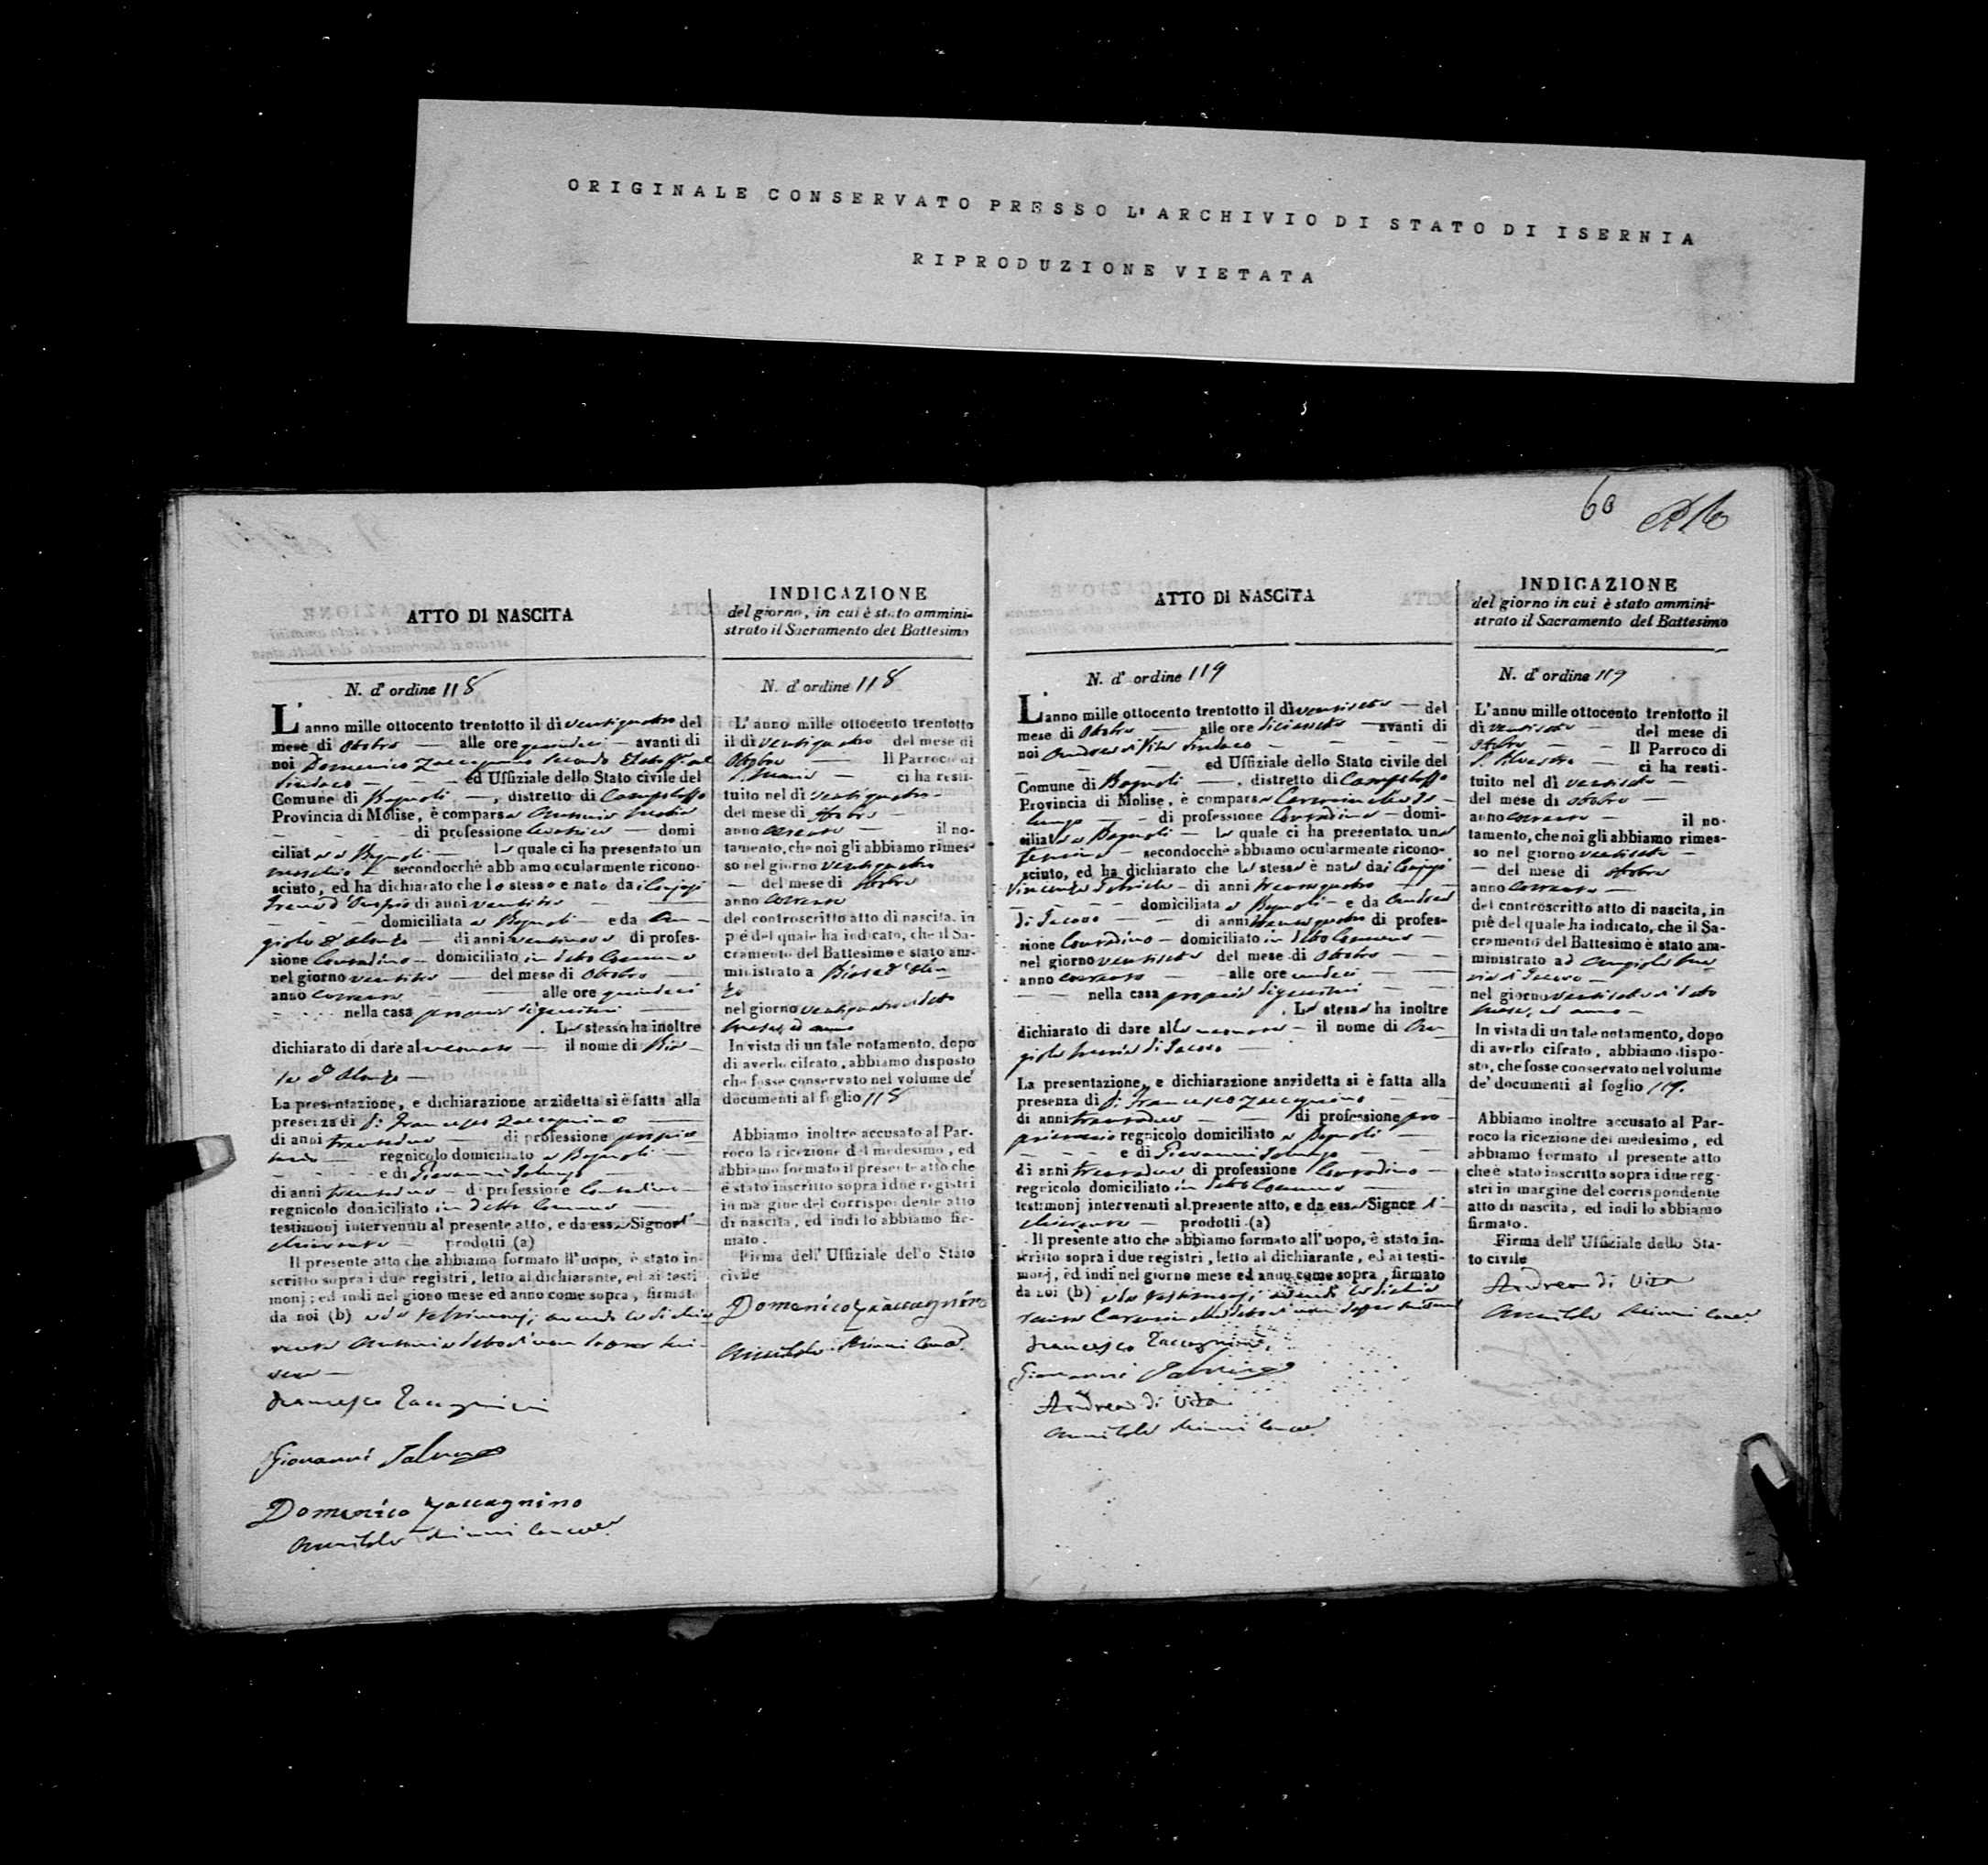 ORIGINALE CONSERVATO PRESSO L'ARCHIVIO DI STATO DI ISERNIA
RIPRODUZIONE VIETATA
ATTO DI NASCITA
N. d' ordine 118
L'anno mille ottocento trentotto il dì ventiquattro del
mese di Ottobre — alle ore quindici — avanti di
noi Domenico Zaccagnino secondo Eletto ff. di
Sindaco — ed Uffiziale dello Stato civile del
Comune di Bagnoli —, distretto di Campobasso
Provincia di Molise, è comparsa Antonia
di professione — domi
ciliata a Bagnoli — la quale ci ha presentato un
maschio — secondocchè abbiamo ocularmente ricono-
sciuto, ed ha dichiarato che lo stesso e nato da i Conjugi
di anni ventitre —
domiciliata a Bagnoli — e da An-
giolo d'Alonzo — di anni ventinove di profes-
sione Contadino — domiciliato in detto Comune
nel giorno ventitre — del mese di Ottobre —
anno corrente — alle ore quindici
nella casa propria di questi —
. La stessa ha inoltre
dichiarato di dare al neonato — il nome di Bia-
se d'Alonzo —
La presentazione, e dichiarazione anzidetta si è fatta alla
presenza di D. Francesco Zaccagnino —
di anni trentadue — di professione proprie
tario — regnicolo domiciliato a Bagnoli —
e di Giovanni Ialungo —
di anni trentadue — di professione Contadino —
regnicolo domiciliato in detto Comune —
testimonj intervenuti al presente atto, e da essa Signora di-
chiarante — prodotti (a)
Il presente atto che abbiamo formato all'uopo, è stato in-
scritto sopra i due registri, letto al dichiarante, ed ai testi
monj; ed indi nel giono mese ed anno come sopra, firmato
da noi (b) e da testimonj; avendo la dichia
rante Antonia detto di non saper scri-
vere —
Francesco Zaccagnini
Giovanni Ialungo
Domenico Zaccagnino
INDICAZIONE
del giorno, in cui è stato ammini-
strato il Sacramento del Battesimo
N. d' ordine 118
L'anno mille ottocento trentotto
il dì ventiquattro del mese di
Ottobre — Il Parroco di
S. Maria — ci ha resti-
tuito nel dì ventiquattro —
del mese di Ottobre —
anno corrente — il no-
tamento, che noi gli abbiamo rimes-
so nel giorno ventiquattro
— del mese di Ottobre
anno corrente
del controscritto atto di nascita, in
piè del quale ha indicato, che il Sa-
cramento del Battesimo e stato am-
ministrato a Biase d'Alon-
zo
nel giorno ventiquattro detto
mese, ed anno
In vista di un tale notamento, dopo
di averlo cifrato, abbiamo disposto
che fosse conservato nel volume de'
documenti al foglio 118
Abbiamo inoltre accusato al Par-
roco la ricezione del medesimo, ed
abbiamo formato il presente atto che
è stato inscritto sopra i due registri
in margine del corrispondente atto
di nascita, ed indi lo abbiamo fir-
mato.
Firma dell' Uffiziale dello Stato
civile
Domenico Zaccagnino
60
ATTO DI NASCITA
N. d' ordine 119
L'anno mille ottocento trentotto il dì ventisette — del
mese di Ottobre — alle ore diciasette — avanti di
noi Andrea di Vita Sindaco —
ed Uffiziale dello Stato civile del
Comune di Bagnoli —, distretto di Campobasso
Provincia di Molise, è comparsa Carmina Ia-
lungo — di professione Contadina — domi-
ciliata a Bagnoli — la quale ci ha presentato una
femina — secondocchè abbiamo ocularmente ricono-
sciuto, ed ha dichiarato che la stessa è nata dai Conjugi
Vincenza — di anni trentaquattro —
domiciliata a Bagnoli — e da Andrea
di Iacovo — di anni trentaquattro di profes-
sione Contadino — domiciliato in detto Comune —
nel giorno ventisette del mese di Ottobre —
anno corrente — alle ore undeci —
nella casa propria di questi —
. La stessa ha inoltre
dichiarato di dare alla neonata — il nome di An-
giola Maria di Iacovo —
La presentazione, e dichiarazione anzidetta si è fatta alla
presenza di D. Francesco Zaccagnino —
di anni trentadue — di professione pro-
prietario regnicolo domiciliato a Bagnoli —
e di Giovanni Ialungo —
di anni trentadue di professione Contadino —
regnicolo domiciliato in detto Comune —
testimonj intervenuti al presente atto, e da essa Signora di-
chiarante — prodotti (a)
Il presente atto che abbiamo formato all' uopo, è stato in-
scritto sopra i due registri, letto al dichiarante, ed ai testi-
monj, ed indi nel giorno mese ed anno come sopra, firmato
da noi (b) e da testimonj; avendo la dichia
rante Carmina detto di non saper scrivere
Francesco Zaccagnino
Giovanni Ialungo
Andrea di Vita
INDICAZIONE
del giorno in cui è stato ammini-
strato il Sacramento del Battesimo
N. d' ordine 119
L'anno mille ottocento trentotto il
dì ventisette — del mese di
Ottobre — Il Parroco di
S. Silvestro — ci ha resti-
tuito nel dì ventisette —
del mese di ottobre —
anno corrente — il no-
tamento, che noi gli abbiamo rimes-
so nel giorno ventisette —
— del mese di ottobre
anno corrente —
del controscritto atto di nascita, in
piè del quale ha indicato, che il Sa-
cramento del Battesimo è stato am-
ministrato ad Angiola Ma
ria di Iacovo —
nel giorno ventisette di detto
mese, ed anno —
In vista di un tale notamento, dopo
di averlo cifrato, abbiamo dispo-
sto, che fosse conservato nel volume
de' documenti al foglio 119.
Abbiamo inoltre accusato al Par-
roco la ricezione del medesimo, ed
abbiamo formato il presente atto
che è stato inscritto sopra i due reg-
stri in margine del corrispondente
atto di nascita, ed indi lo abbiamo
firmato.
Firma dell' Uffiziale dello Sta-
to civile
Andrea di Vita